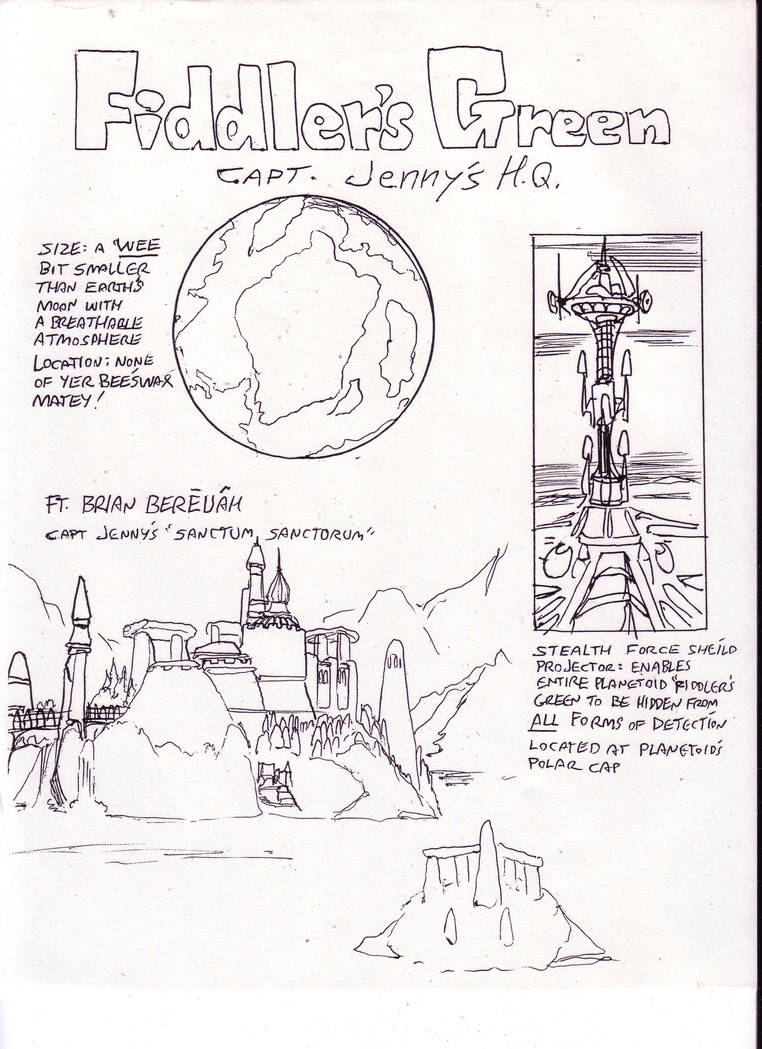 Fiddler's Green
CAPT. Jenny's H.Q.
SIZE: A "WEE
BIT SMALLER
THAN EARTH'S
MOON WITH
A BREATHABLE
ATMOSPHERE
LOCATION: NONE
OF YER BEE'SWAX
MATEY!
FT. BRIAN BERĒVÂH
CAPT JENNY'S "SANCTUM SANCTORUM"
STEALTH FORCE SHEILD
PROJECTOR: ENABLES
ENTIRE PLANETOID "FIDDLER'S
GREEN TO BE HIDDEN FROM
ALL FORMS OF DETECTION
LOCATED AT PLANETOID'S
POLAR CAP